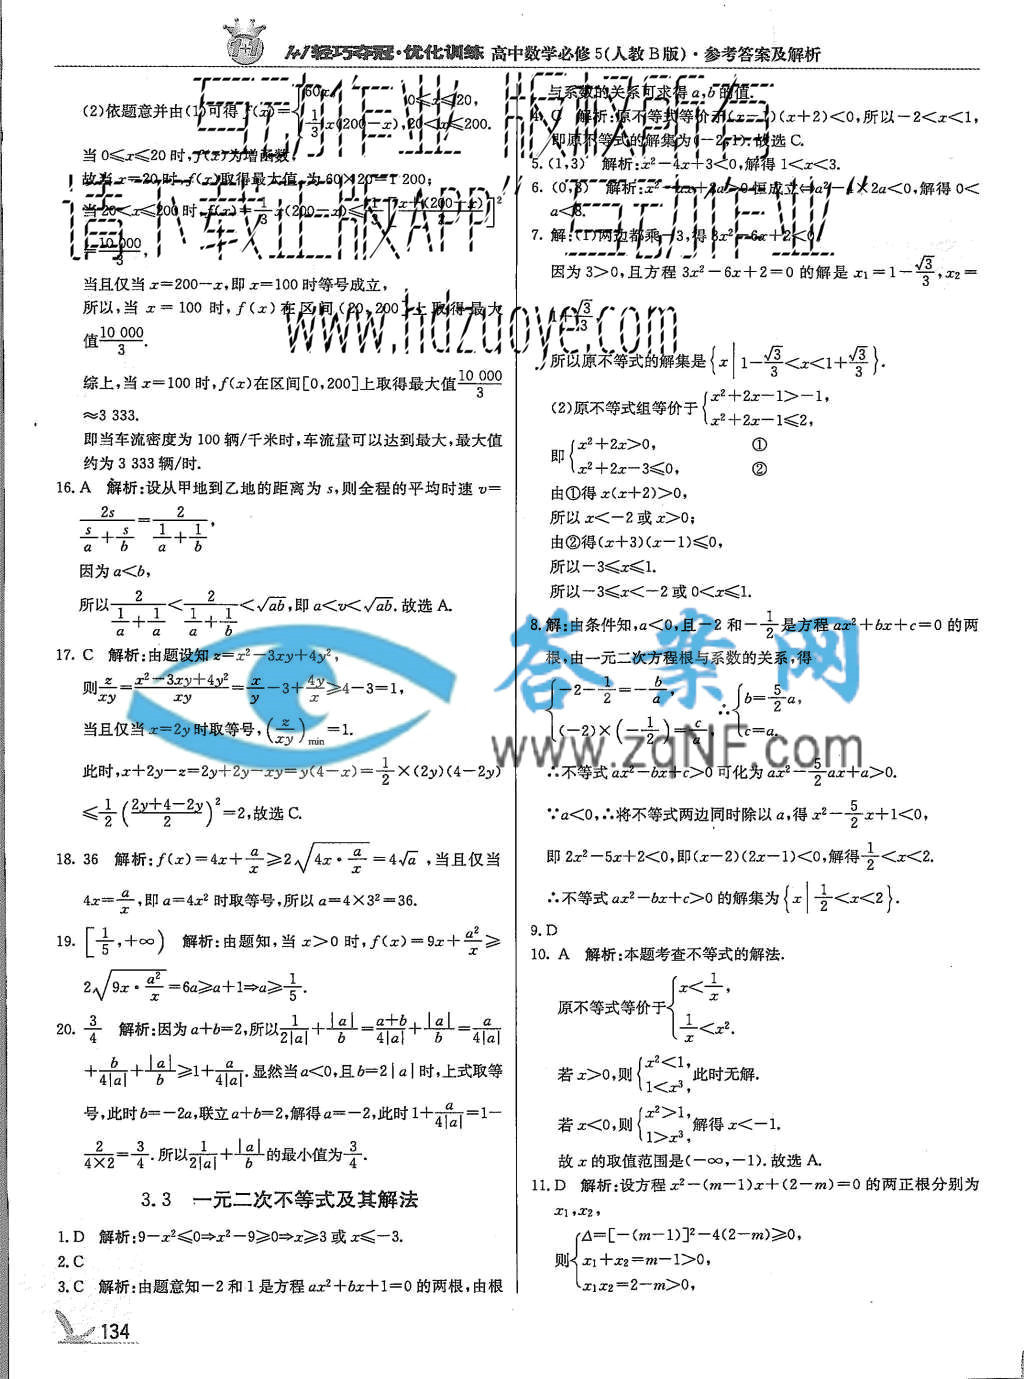 1+1轻巧夺冠·优化训练 高中数学必修5(人教B版)·参考答案及解析
(2)依题意并由(1)可得f(x)={60x, 0≤x≤20, 1/3 x(200-x), 20<x≤200.
当0≤x≤20时,f(x)为增函数,
故当x=20时,f(x)取得最大值,为60×20=1 200;
当20<x≤200时,f(x)=1/3 x(200-x)≤1/3[x+(200-x)/2]²
=10 000/3,
当且仅当x=200-x,即x=100时等号成立,
所以,当x=100时,f(x)在区间(20,200]上取得最大
值10 000/3.
综上,当x=100时,f(x)在区间[0,200]上取得最大值10 000/3
≈3 333.
即当车流密度为100辆/千米时,车流量可以达到最大,最大值
约为3 333辆/时.
16. A 解析:设从甲地到乙地的距离为s,则全程的平均时速v=
2s/(s/a+s/b)=2/(1/a+1/b),
因为a<b,
所以2/(1/a+1/a)<2/(1/a+1/b)<√ab,即a<v<√ab.故选A.
17. C 解析:由题设知z=x²-3xy+4y²,
则z/xy=(x²-3xy+4y²)/xy=x/y-3+4y/x≥4-3=1,
当且仅当x=2y时取等号,(z/xy)min=1.
此时,x+2y-z=2y+2y-xy=y(4-x)=1/2×(2y)(4-2y)
≤1/2((2y+4-2y)/2)²=2,故选C.
18. 36 解析:f(x)=4x+a/x≥2√(4x·a/x)=4√a,当且仅当
4x=a/x,即a=4x²时取等号,所以a=4×3²=36.
19. [1/5,+∞) 解析:由题知,当x>0时,f(x)=9x+a²/x≥
2√(9x·a²/x)=6a≥a+1⇒a≥1/5.
20. 3/4 解析:因为a+b=2,所以1/2|a|+|a|/b=(a+b)/4|a|+|a|/b=a/4|a|
+b/4|a|+|a|/b≥1+a/4|a|.显然当a<0,且b=2|a|时,上式取等
号,此时b=-2a,联立a+b=2,解得a=-2,此时1+a/4|a|=1-
2/(4×2)=3/4.所以1/2|a|+|a|/b的最小值为3/4.
3.3 一元二次不等式及其解法
1. D 解析:9-x²≤0⇒x²-9≥0⇒x≥3或x≤-3.
2. C
3. C 解析:由题意知-2和1是方程ax²+bx+1=0的两根,由根
134
与系数的关系可求得a,b的值.
4. C 解析:原不等式等价于(x-1)(x+2)<0,所以-2<x<1,
即原不等式的解集为(-2,1).故选C.
5. (1,3) 解析:x²-4x+3<0,解得1<x<3.
6. (0,8) 解析:x²-ax+2a>0恒成立⇔a²-4×2a<0,解得0<
a<8.
7. 解:(1)两边都乘-3,得3x²-6x+2<0,
因为3>0,且方程3x²-6x+2=0的解是x₁=1-√3/3,x₂=
1+√3/3,
所以原不等式的解集是{x|1-√3/3<x<1+√3/3}.
(2)原不等式组等价于{x²+2x-1>-1, x²+2x-1≤2,
即{x²+2x>0, ① x²+2x-3≤0, ②
由①得x(x+2)>0,
所以x<-2或x>0;
由②得(x+3)(x-1)≤0,
所以-3≤x≤1.
所以-3≤x<-2或0<x≤1.
8. 解:由条件知,a<0,且-2和-1/2是方程ax²+bx+c=0的两
根,由一元二次方程根与系数的关系,得
{-2-1/2=-b/a, (-2)×(-1/2)=c/a, ∴{b=5/2 a, c=a.
∴不等式ax²-bx+c>0可化为ax²-5/2 ax+a>0.
∵a<0,∴将不等式两边同时除以a,得x²-5/2 x+1<0,
即2x²-5x+2<0,即(x-2)(2x-1)<0,解得1/2<x<2.
∴不等式ax²-bx+c>0的解集为{x|1/2<x<2}.
9. D
10. A 解析:本题考查不等式的解法.
原不等式等价于{x<1/x, 1/x<x².
若x>0,则{x²<1, 1<x³,此时无解.
若x<0,则{x²>1, 1>x³,解得x<-1.
故x的取值范围是(-∞,-1).故选A.
11. D 解析:设方程x²-(m-1)x+(2-m)=0的两正根分别为
x₁,x₂,
则{Δ=[-(m-1)]²-4(2-m)≥0, x₁+x₂=m-1>0, x₁x₂=2-m>0,
互动作业 版权所有
请下载正版APP"互动作业"
www.hdzuoye.com
答案网
www.zqNF.com